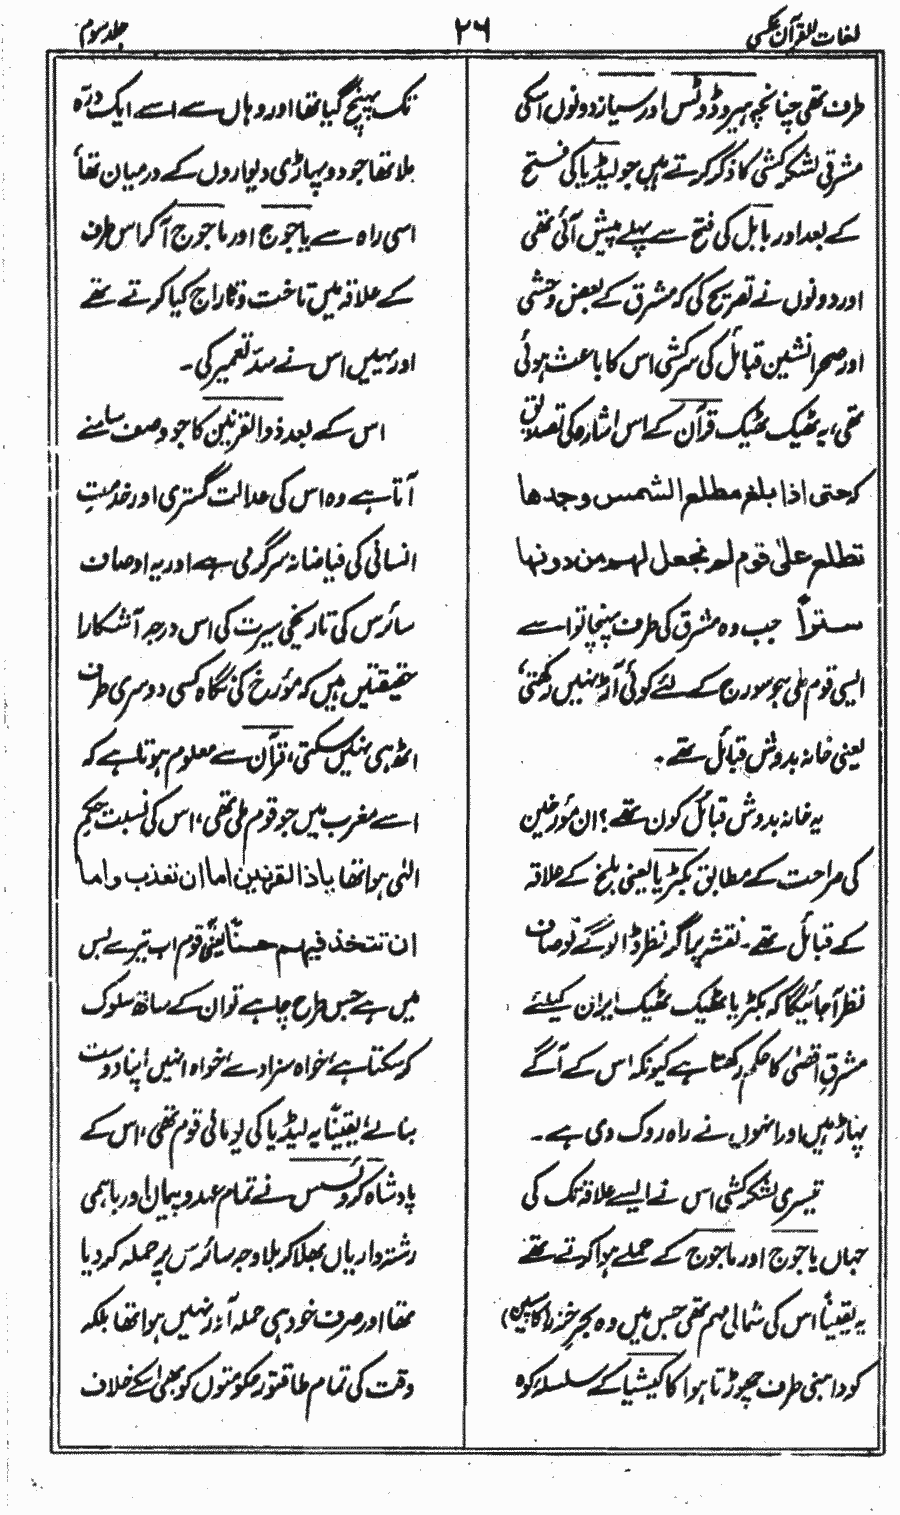 لغات القرآن عکسی
۲۶
جلد سوم
طرف تھی چنانچہ ہیروڈوٹس اور سیاز دونوں اسکی
مشرقی لشکر کشی کا ذکر کرتے ہیں جو لیڈیا کی فتح
کے بعد اور بابل کی فتح سے پہلے پیش آئی تھی
اور دونوں نے تصریح کی کہ مشرق کے بعض وحشی
اور صحرا نشین قبائل کی سرکشی اس کا باعث ہوئی
تھی، یہ ٹھیک ٹھیک قرآن کے اس اشارہ کی تصدیق
کہ حتی اذا بلغ مطلع الشمس وجدھا
تطلع علیٰ قوم لم نجعل لھم من دونھا
سترا جب وہ مشرق کی طرف پہنچا تو اسے
ایسی قوم ملی جو سورج کے لئے کوئی آڑ نہیں رکھتی،
یعنی خانہ بدوش قبائل تھے۔
یہ خانہ بدوش قبائل کون تھے؟ ان مؤرخین
کی صراحت کے مطابق بکٹریا یعنی بلخ کے علاقہ
کے قبائل تھے۔ نقشہ پر اگر نظر ڈالو گے تو صاف
نظر آجائیگا کہ بکٹریا ٹھیک ٹھیک ایران کیلئے
مشرقِ اقصٰی کا حکم رکھتا ہے کیونکہ اس کے آگے
پہاڑ ہیں اور انہوں نے راہ روک دی ہے۔
تیسری لشکر کشی اس نے ایسے علاقہ تک کی
جہاں یاجوج اور ماجوج کے حملے ہوا کرتے تھے
یہ یقیناً اس کی شمالی مہم تھی جس میں وہ بحر خزر (کاسپین)
کو داہنی طرف چھوڑتا ہوا کاکیشیا کے سلسلۂ کوہ
تک پہنچ گیا تھا اور وہاں سے اسے ایک درّہ
ملا تھا جو دو پہاڑی دیواروں کے درمیان تھا،
اسی راہ سے یاجوج اور ماجوج آ کر اس طرف
کے علاقہ میں تاخت و تاراج کیا کرتے تھے
اور یہیں اس نے سدّ تعمیر کی۔
اس کے بعد ذوالقرنین کا جو وصف سامنے
آتا ہے وہ اس کی عدالت گستری اور خدمتِ
انسانی کی فیاضانہ سرگرمی ہے اور یہ اوصاف
سائرس کی تاریخی سیرت کی اس درجہ آشکارا
حقیقتیں ہیں کہ مؤرخ کی نگاہ کسی دوسری طرف
اٹھ ہی نہیں سکتی، قرآن سے معلوم ہوتا ہے کہ
اسے مغرب میں جو قوم ملی تھی، اس کی نسبت حکمِ
الٰہی ہوا تھا یاذا القرنین اما ان تعذب واما
ان تتخذ فیھم حسنا یعنی قوم اب تیرے بس
میں ہے جس طرح چاہے تو ان کے ساتھ سلوک
کر سکتا ہے، خواہ سزا دے، خواہ انہیں اپنا دوست
بنا لے، یقیناً یہ لیڈیا کی یونانی قوم تھی، اس کے
پادشاہ کروئسس نے تمام عہد و پیماں اور باہمی
رشتہ داریاں بھلا کر بلا وجہ سائرس پر حملہ کر دیا
تھا اور صرف خود ہی حملہ آور نہیں ہوا تھا بلکہ
وقت کی تمام طاقتور حکومتوں کو بھی اسکے خلاف